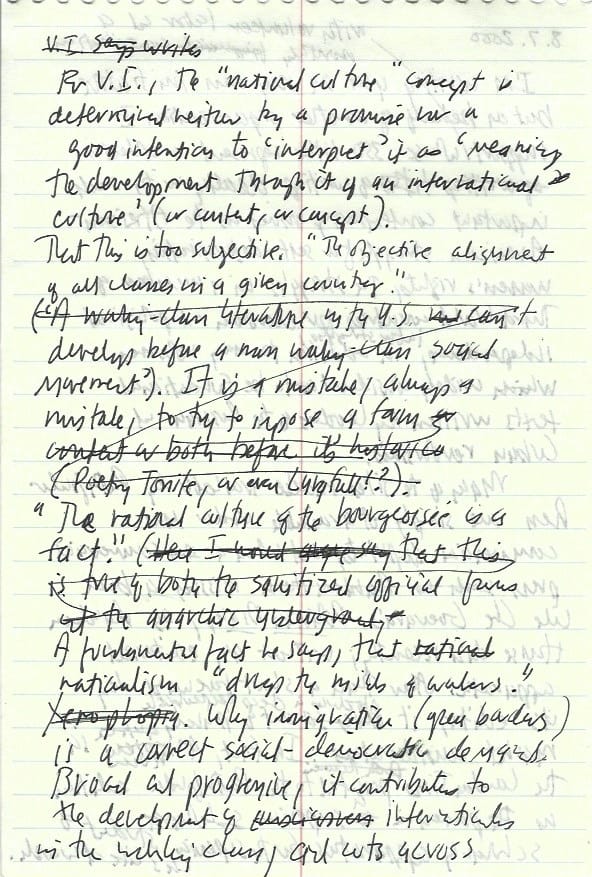 V.I Says writes
For V.I., the "national culture" concept is
determined neither by a promise nor a
good intention to 'interpret' it as "meaning
the development through it of an international
culture" (or content, or concept).
That this is too subjective. "The objective alignment
of all classes in a given country."
("A working-class literature in the U.S. can't
develop before a mass working-class social
movement"). It is a mistake, always a
mistake, to try to impose a form or
content or both before its historica
(Poetry Tonite, or even Lungfull!?).
"The national culture of the bourgeoisie is a
fact." (Here I would say that this
is true of both the sanitized official forms
and the anarchic underground,
A fundamental fact he says, that national
nationalism "drugs the minds of workers."
Xenophopia. Why immigration (open borders)
is a correct social-democratic demand.
Broad and progressive, it contributes to
the development of internationalism
in the working class, and cuts across